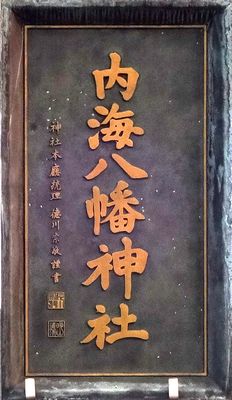 内海八幡神社
神社本廳統理 徳川宗敬謹書